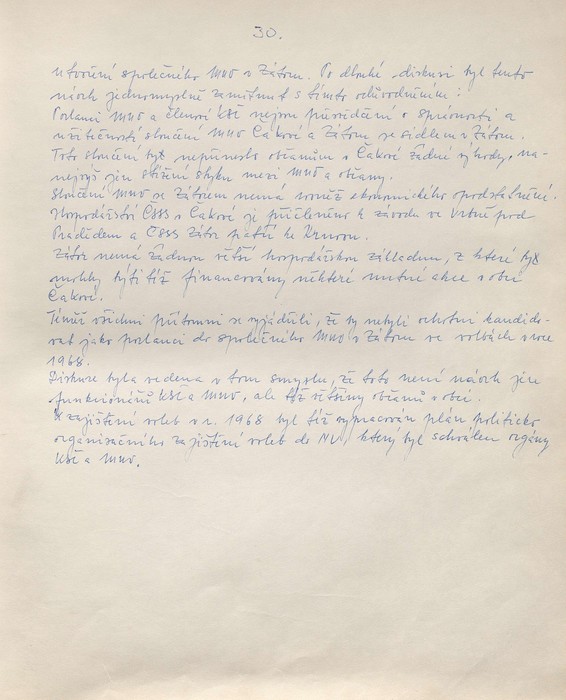 30.
utvoření společného MNV v Zátoru. Po dlouhé diskusi byl tento
návrh jednomyslně zamítnut s tímto odůvodněním:
Poslanci MNV a členové KSČ nejsou přesvědčeni o správnosti a
užitečnosti sloučení MNV Čaková a Zátor se sídlem v Zátoru.
Toto sloučení by nepřineslo občanům v Čakové žádné výhody, na-
nejvýš jen stížení styku mezi MNV a občany.
Sloučení MNV se Zátorem nemá rovněž ekonomického opodstatnění.
Hospodářství ČSSS v Čakové je přičleněno k závodu ve Vrbně pod
Pradědem a ČSSS Zátor patří ke Krnovu.
Zátor nemá žádnou větší hospodářskou základnu, z které by
mohly býti též financovány některé nutné akce v obci
Čakové.
Téměř všichni přítomní se vyjádřili, že by nebyli ochotni kandido-
vat jako poslanci do společného MNV v Zátoru ve volbách v roce
1968.
Diskuse byla vedena v tom smyslu, že toto není návrh jen
funkcionářů KSČ a MNV, ale též většiny občanů v obci.
K zajištění voleb v r. 1968 byl též vypracován plán politicko
organisačního zajištění voleb do NV, který byl schválen orgány
KSČ a MNV.